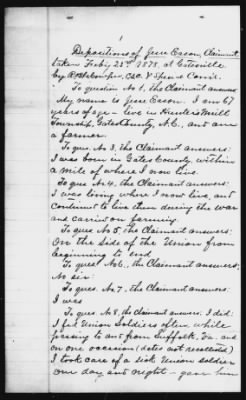 Depositions of Jesse Eason, Claimant,
taken Feb'y 25th 1878 at Gatesville
by Special Com'r.
To question No 1, the Claimant answers:
My name is Jesse Eason. I am 67
years of age - live in Hunters Mill
Township, Gates County, N.C., and am
a farmer.
To ques. No 3, the Claimant answers:
I was born in Gates County, within
a mile of where I now live.
To ques No. 4, the Claimant answers:
I was living where I now live, and
continued to live there during the war
and carried on farming.
To ques No 5, the Claimant answers:
On the side of the Union from
beginning to end
To ques No 6, the Claimant answers:
No sir.
To ques. No. 7. the Claimant answers:
I was
To ques. No. 8, the Claimant answers: I did:
I fed Union Soldiers often while
passing to and from Suffolk, Va. and
on one occasion (dates not recollected)
I took care of a sick Union soldier
one day and night - gave him